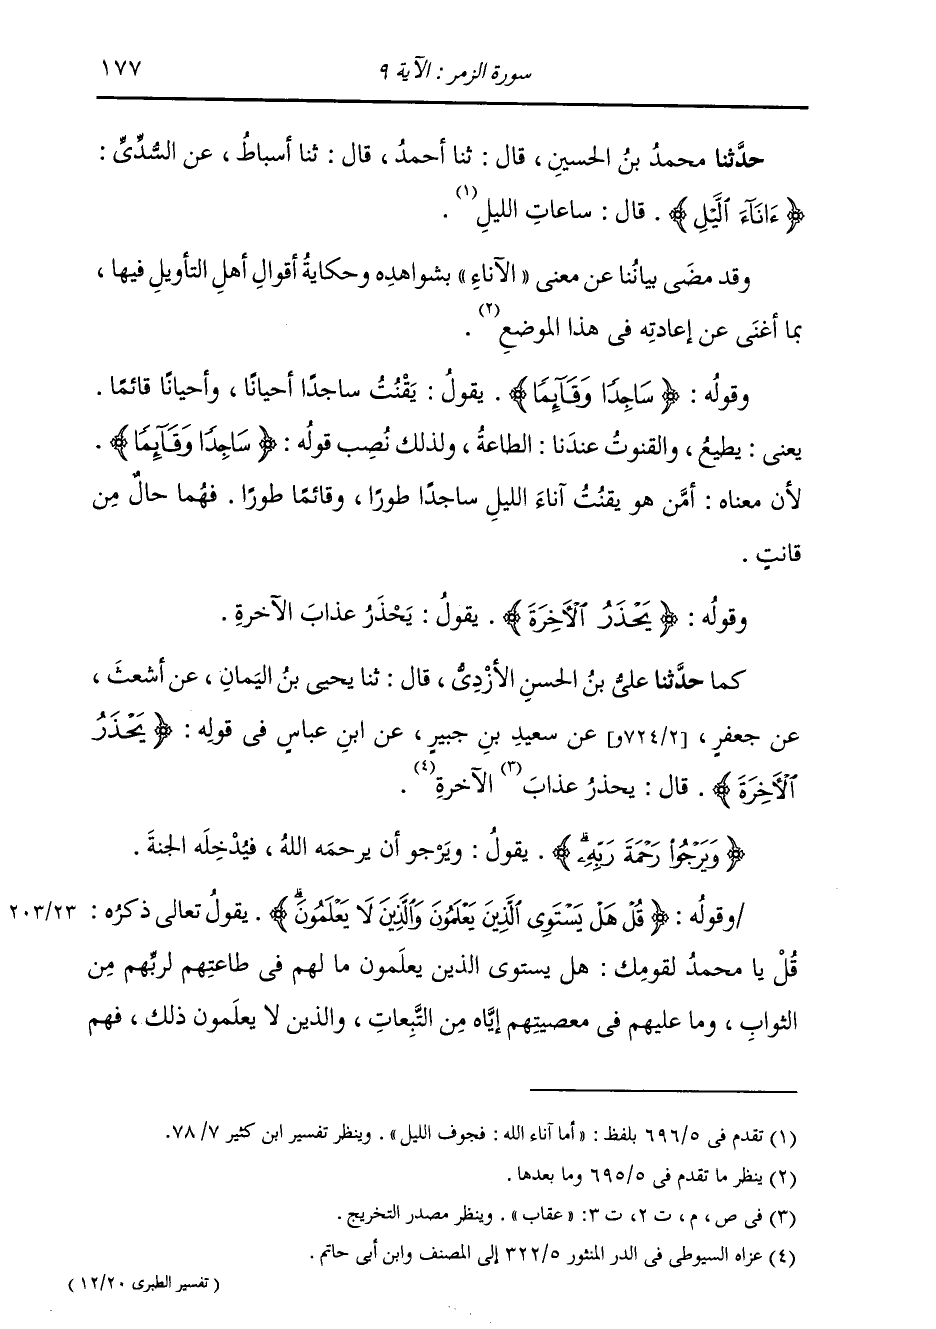 سورة الزمر : الآية ٩
١٧٧
حدَّثنا محمدُ بنُ الحسينِ ، قال : ثنا أحمدُ ، قال : ثنا أسباطُ ، عن السُّدِّىِّ :
﴿ ءَانَآءَ ٱلَّيْلِ ﴾ . قال : ساعاتِ الليلِ(١) .
وقد مضَى بيانُنا عن معنى « الآناءِ » بشواهدِه وحكايةُ أقوالِ أهلِ التأويلِ فيها ،
بما أغنَى عن إعادتِه فى هذا الموضعِ(٢) .
وقولُه : ﴿ سَاجِدًا وَقَآئِمًا ﴾ . يقولُ : يَقْنُتُ ساجدًا أحيانًا ، وأحيانًا قائمًا .
يعنى : يطيعُ ، والقنوتُ عندَنا : الطاعةُ ، ولذلك نُصِب قولُه : ﴿ سَاجِدًا وَقَآئِمًا ﴾ .
لأن معناه : أمَّن هو يقنُتُ آناءَ الليلِ ساجدًا طورًا ، وقائمًا طورًا . فهُما حالٌ مِن
قانتٍ .
وقولُه : ﴿ يَحْذَرُ ٱلْأَخِرَةَ ﴾ . يقولُ : يَحْذَرُ عذابَ الآخرةِ .
كما حدَّثنا علىُّ بنُ الحسنِ الأزْدِىُّ ، قال : ثنا يحيى بنُ اليَمانِ ، عن أشعثَ ،
عن جعفرٍ ، [٧٢٤/٢و] عن سعيدِ بنِ جبيرٍ ، عن ابنِ عباسٍ فى قولِه : ﴿ يَحْذَرُ
ٱلْأَخِرَةَ ﴾ . قال : يحذرُ عذابَ(٣) الآخرةِ(٤) .
﴿ وَيَرْجُوا۟ رَحْمَةَ رَبِّهِۦۗ ﴾ . يقولُ : ويَرْجو أن يرحمَه اللهُ ، فيُدْخِلَه الجنةَ .
/وقولُه : ﴿ قُلْ هَلْ يَسْتَوِى ٱلَّذِينَ يَعْلَمُونَ وَٱلَّذِينَ لَا يَعْلَمُونَۗ ﴾ . يقولُ تعالى ذكرُه : ٢٠٣/٢٣
قُلْ يا محمدُ لقومِك : هل يستوى الذين يعلَمون ما لهم فى طاعتِهم لربِّهم مِن
الثوابِ ، وما عليهم فى معصيتِهم إيَّاه مِن التَّبِعاتِ ، والذين لا يعلَمون ذلك ، فهم
(١) تقدم فى ٦٩٦/٥ بلفظ : « أما آناء الله : فجوف الليل » . وينظر تفسير ابن كثير ٧/ ٧٨.
(٢) ينظر ما تقدم فى ٦٩٥/٥ وما بعدها .
(٣) فى ص ، م ، ت ٢، ت ٣: « عقاب » . وينظر مصدر التخريج .
(٤) عزاه السيوطى فى الدر المنثور ٣٢٢/٥ إلى المصنف وابن أبى حاتم .
( تفسير الطبرى ١٢/٢٠ )